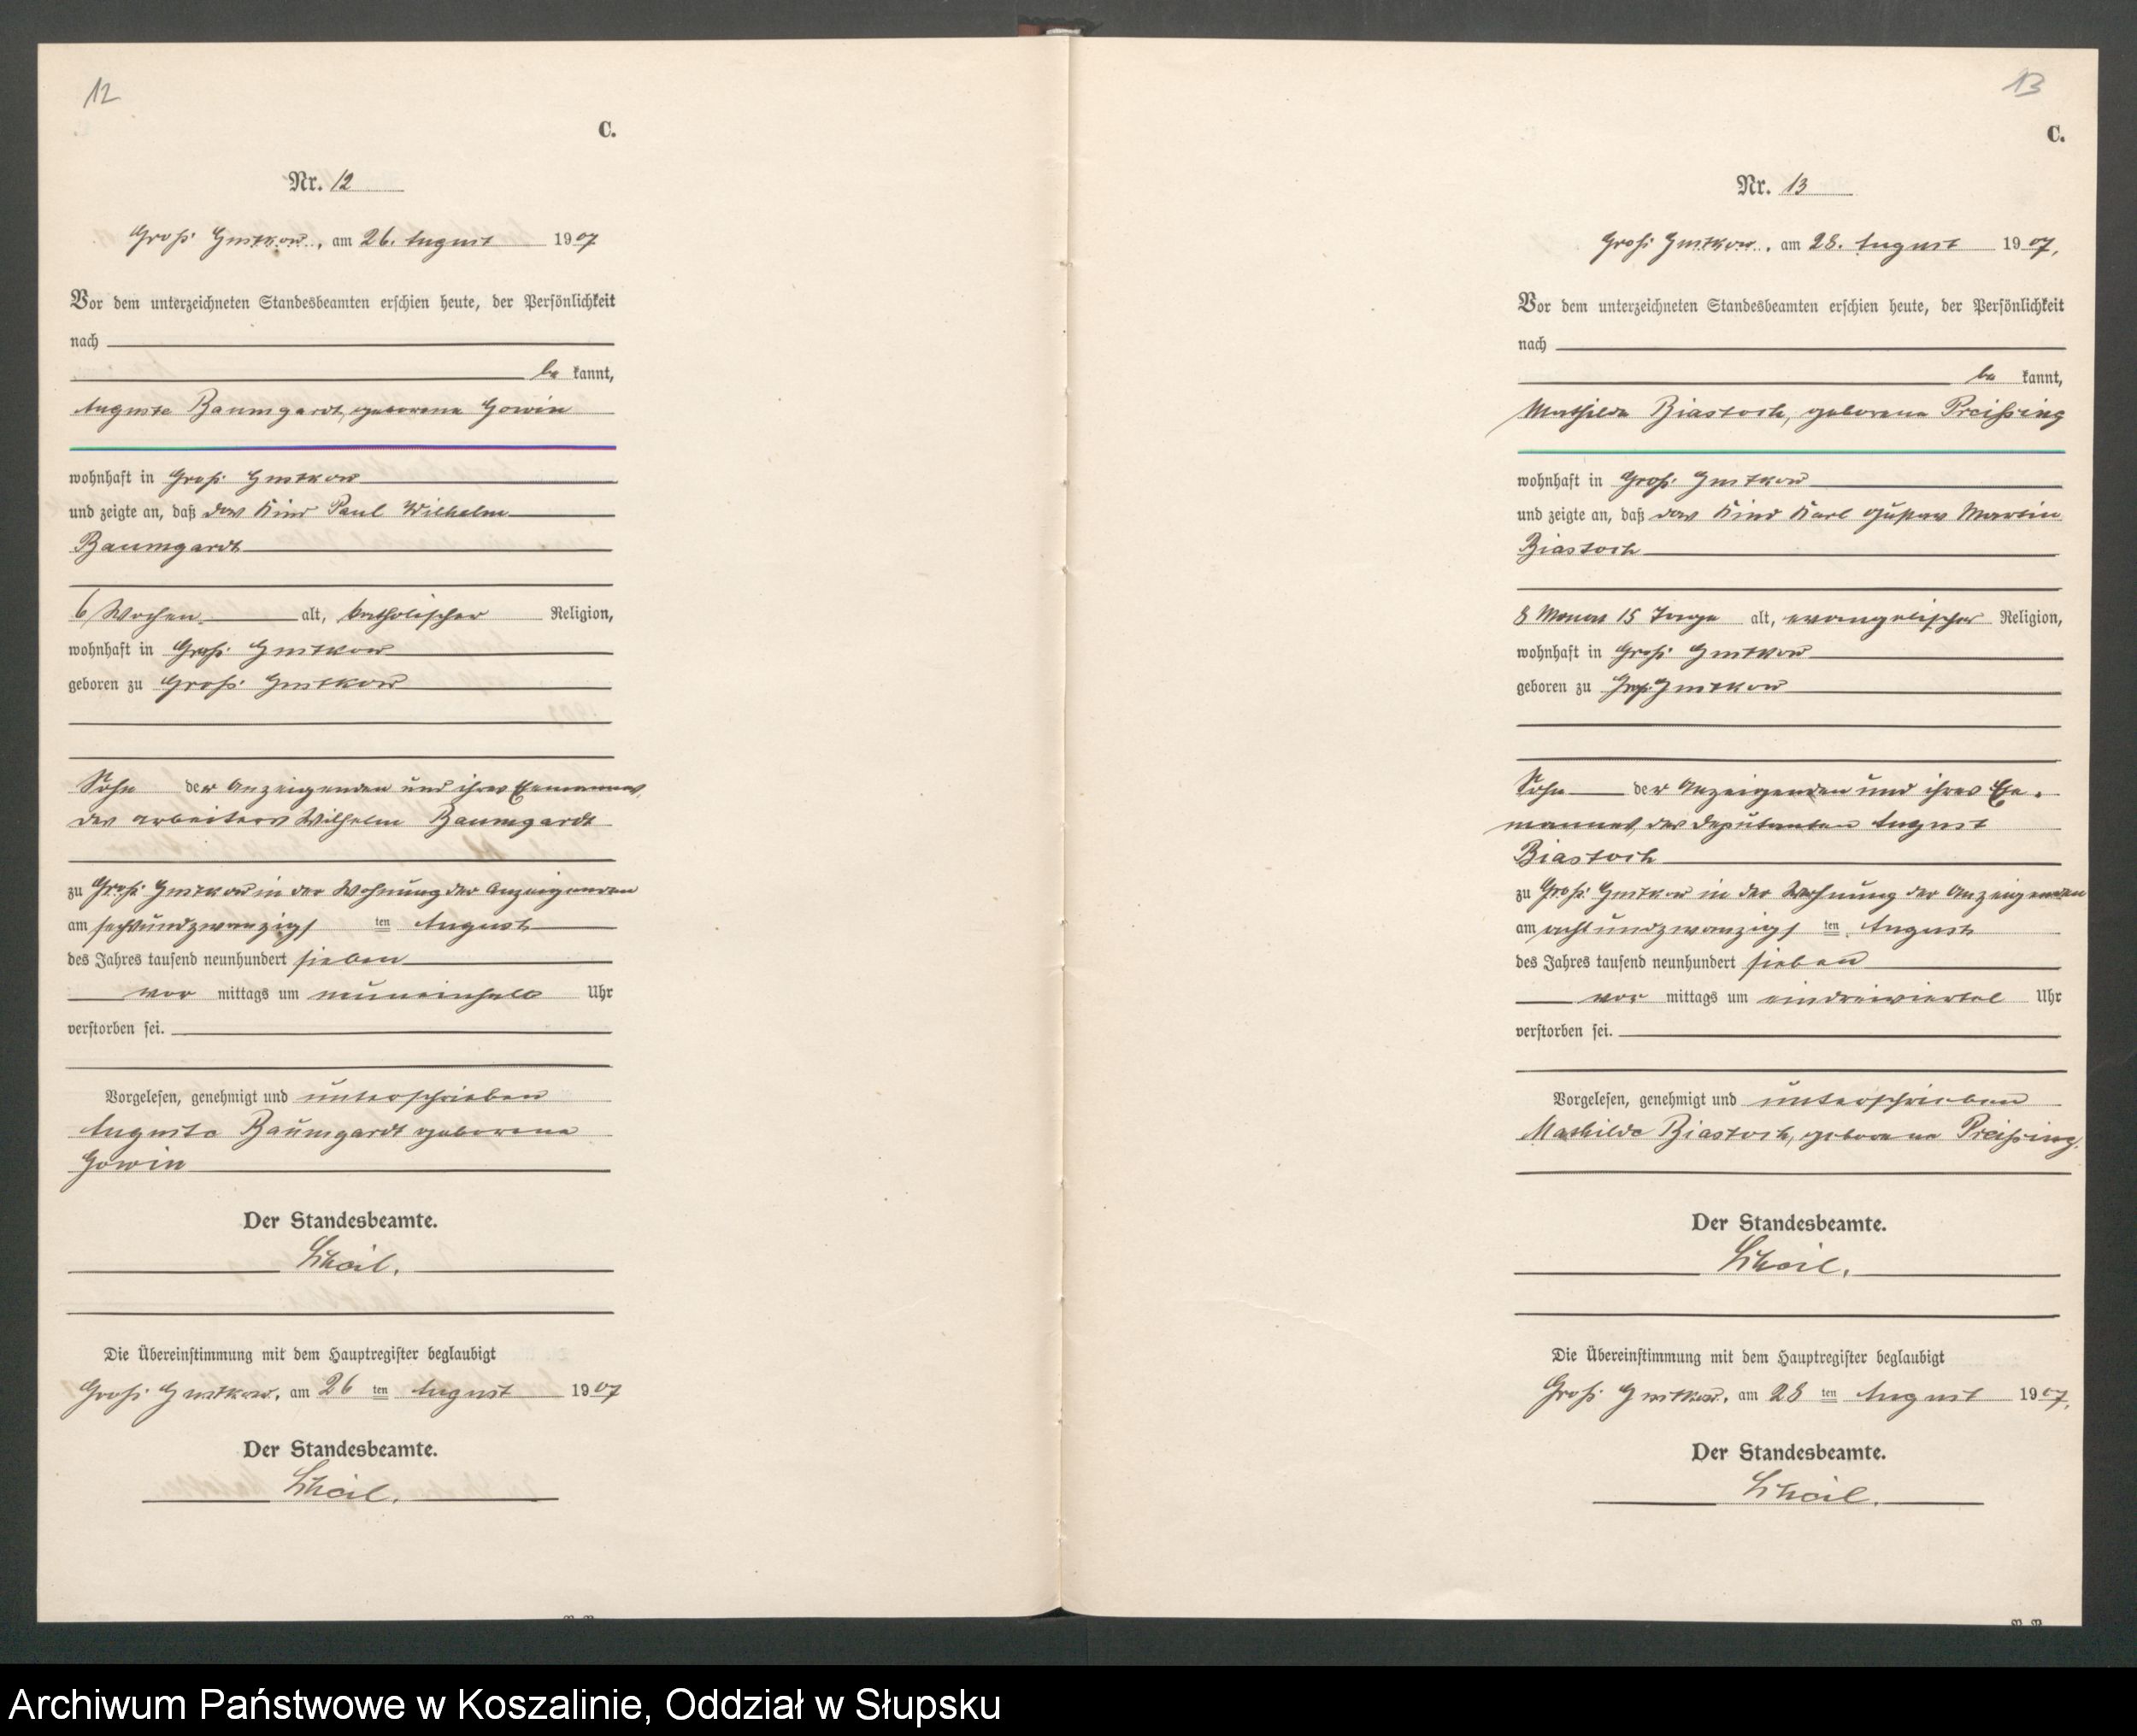 12
C.
Nr. 12
Groß Gustkow, am 26. August 1907
Vor dem unterzeichneten Standesbeamten erschien heute, der Persönlichkeit
nach
be kannt,
Auguste Baumgardt, geborene Gowin
wohnhaft in Groß Gustkow
und zeigte an, daß das Kind Paul Wilhelm
Baumgardt
6 Wochen alt, katholischer Religion,
wohnhaft in Groß Gustkow
geboren zu Groß Gustkow
Sohn der Anzeigenden und ihres Ehemannes,
des Arbeiters Wilhelm Baumgardt
zu Groß Gustkow in der Wohnung der Anzeigenden
am sechsundzwanzigs ten August
des Jahres tausend neunhundert sieben
vor mittags um neuneinhalb Uhr
verstorben sei.
Vorgelesen, genehmigt und unterschrieben
Auguste Baumgardt geborene
Gowin
Der Standesbeamte.
Die Übereinstimmung mit dem Hauptregister beglaubigt
Groß Gustkow, am 26 ten August 1907
Der Standesbeamte.
13
C.
Nr. 13
Groß Gustkow, am 28. August 1907.
Vor dem unterzeichneten Standesbeamten erschien heute, der Persönlichkeit
nach
be kannt,
Mathilde Biastoch, geborene Preißing
wohnhaft in Groß Gustkow
und zeigte an, daß das Kind Karl Gustav Martin
Biastoch
8 Monat 15 Tage alt, evangelischer Religion,
wohnhaft in Groß Gustkow
geboren zu Groß Gustkow
Sohn der Anzeigenden und ihres Ehe-
mannes, des Deputanten August
Biastoch
zu Groß Gustkow in der Wohnung der Anzeigenden
am achtundzwanzigs ten August
des Jahres tausend neunhundert sieben
vor mittags um eindreiviertel Uhr
verstorben sei.
Vorgelesen, genehmigt und unterschrieben
Mathilde Biastoch, geborene Preißing.
Der Standesbeamte.
Die Übereinstimmung mit dem Hauptregister beglaubigt
Groß Gustkow, am 28 ten August 1907.
Der Standesbeamte.
Archiwum Państwowe w Koszalinie, Oddział w Słupsku